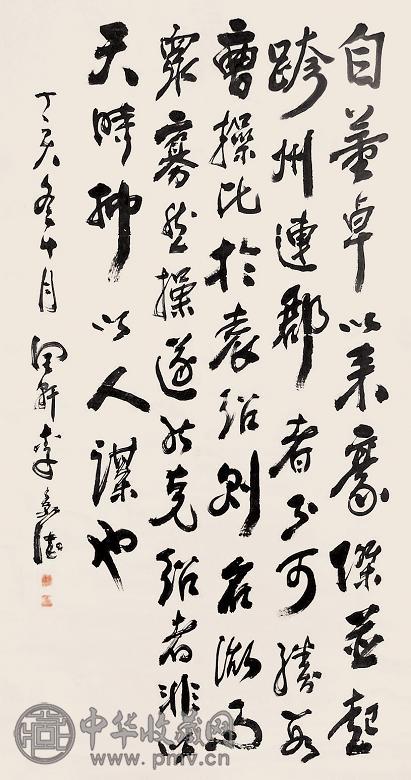 自董卓以來豪傑並起
跨州連郡者不可勝數
曹操比於袁紹則名微而
眾寡然操遂能克紹者非
天時抑以人謀也
丁亥冬十月 軒李
中华收藏网
www.pmlv.cn